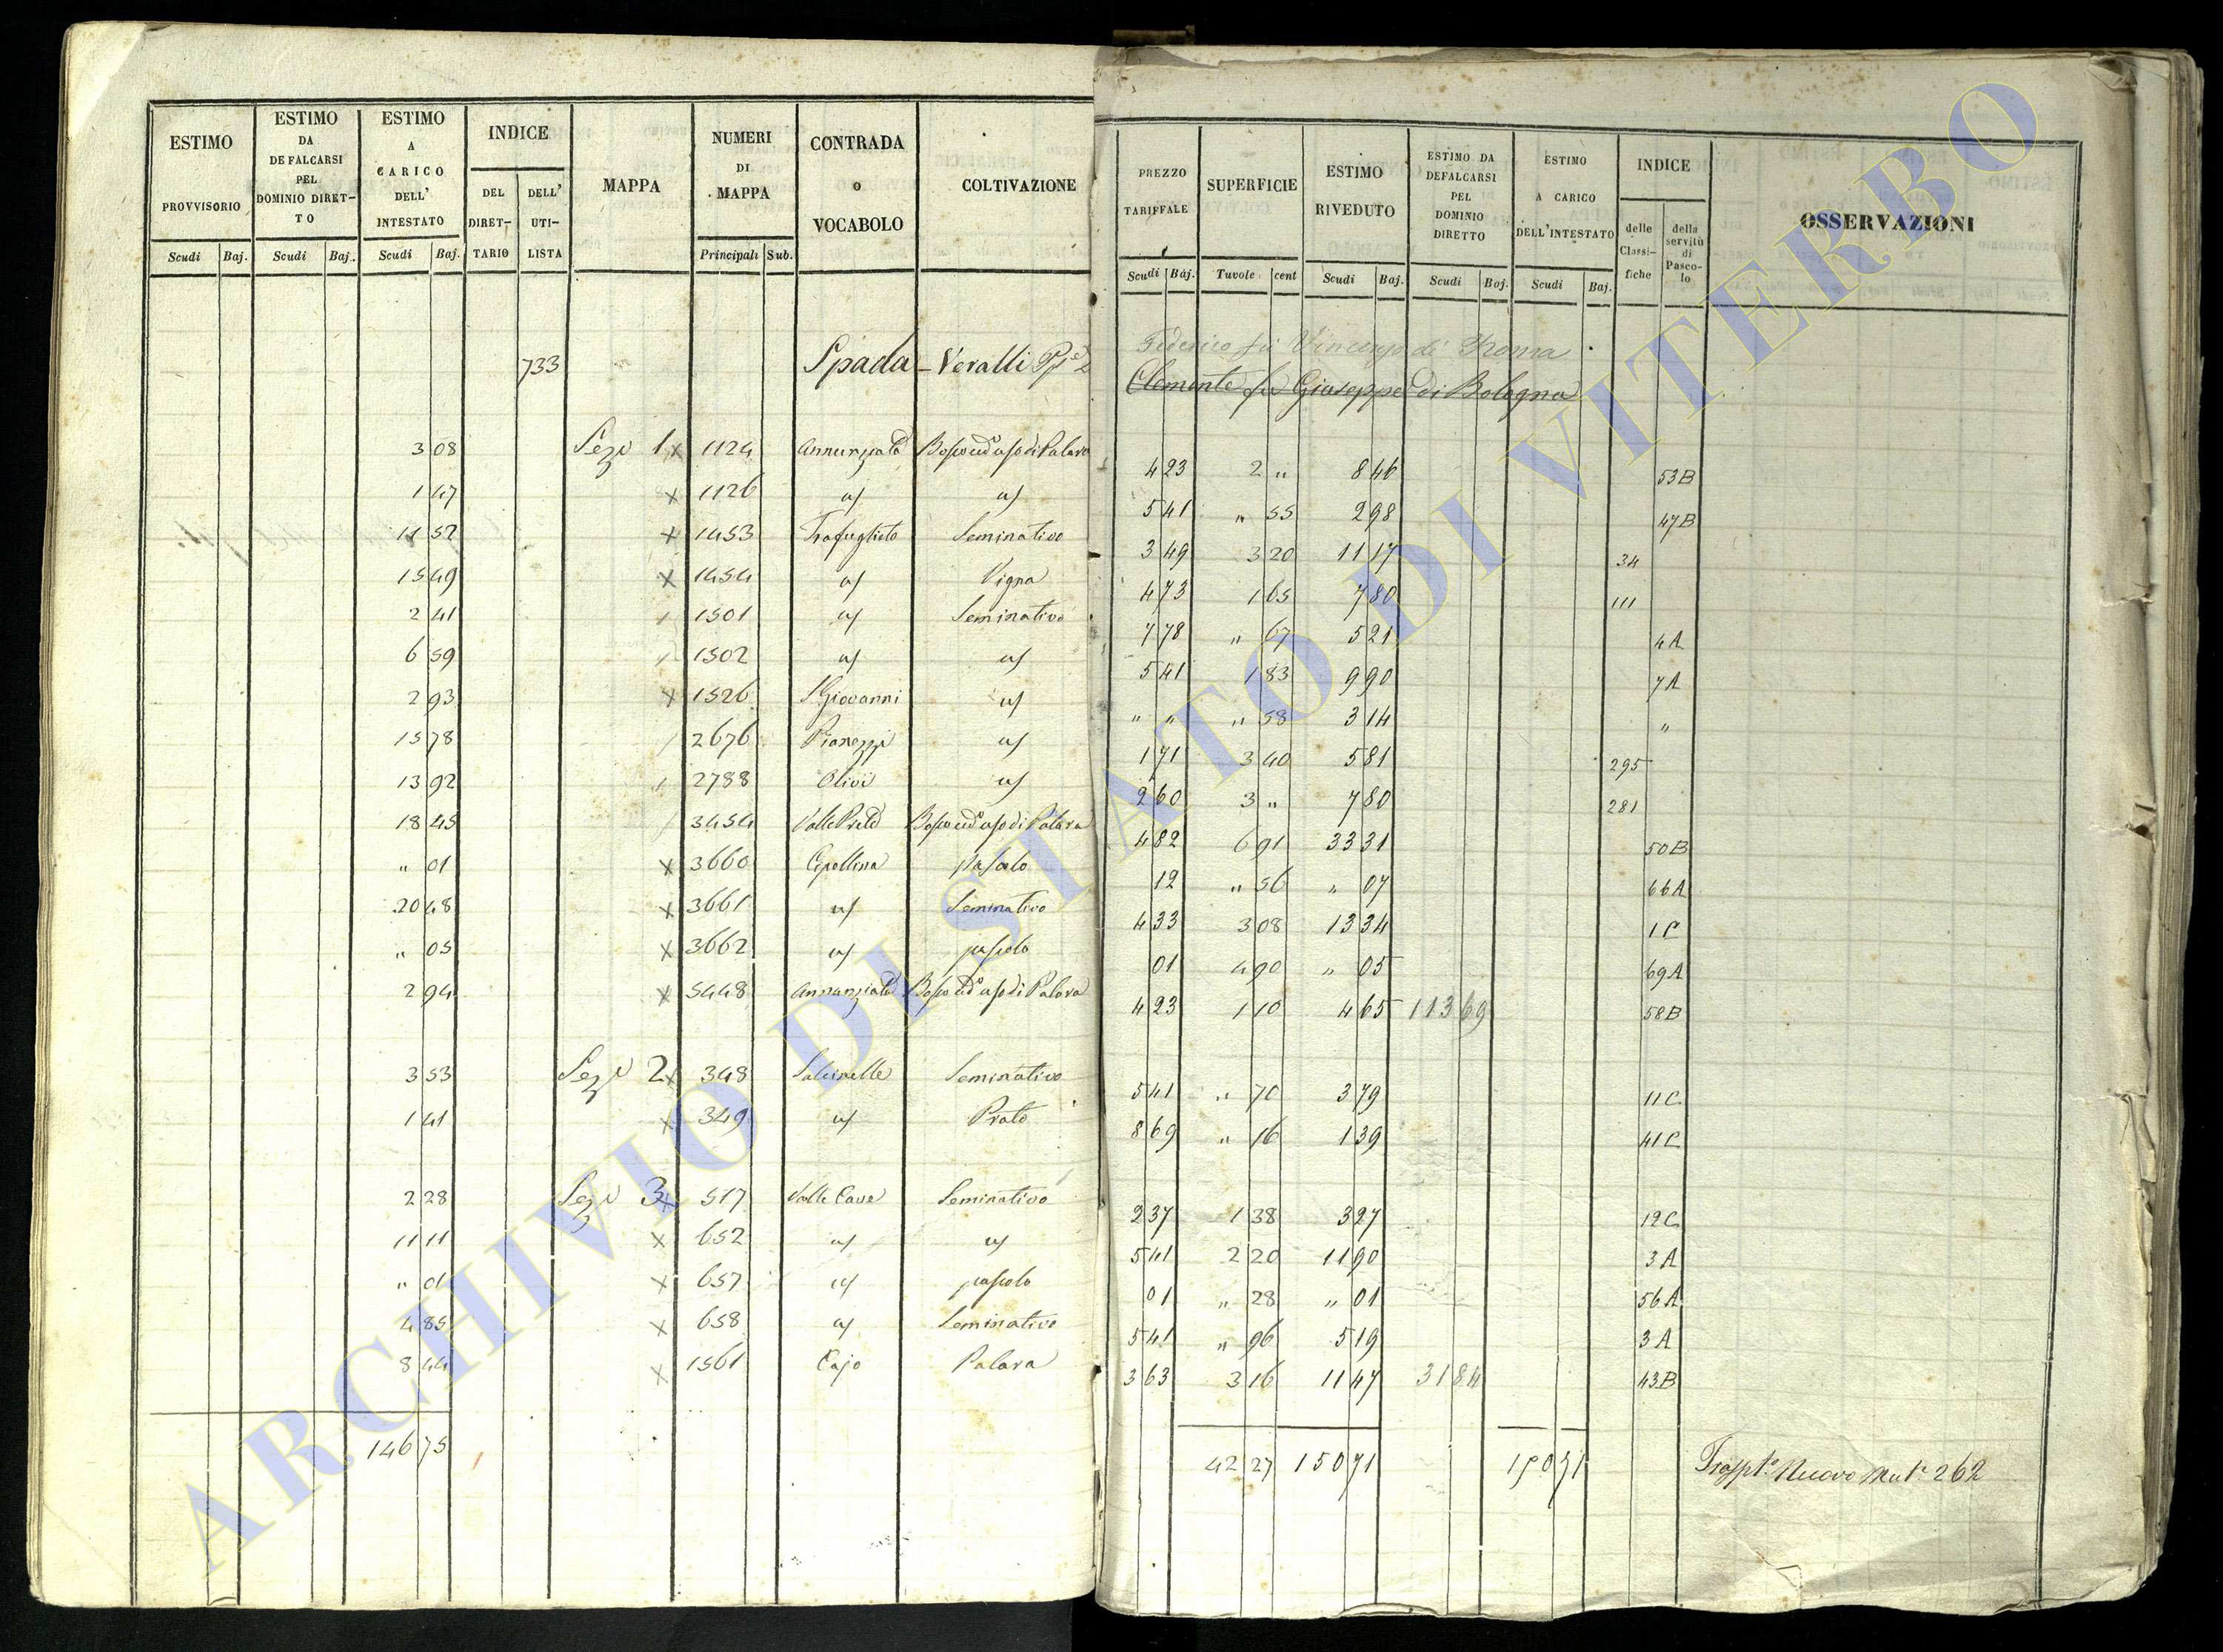 ESTIMO PROVVISORIO Scudi Baj.
ESTIMO DA DEFALCARSI PEL DOMINIO DIRET-TO Scudi Baj.
ESTIMO A CARICO DELL' INTESTATO Scudi Baj.
INDICE DEL DIRET-TARIO DELL' UTI-LISTA
MAPPA
NUMERI DI MAPPA Principali Sub.
CONTRADA o VOCABOLO
COLTIVAZIONE
PREZZO TARIFFALE Scudi Baj.
SUPERFICIE Tuvole cent
ESTIMO RIVEDUTO Scudi Baj.
ESTIMO DA DEFALCARSI PEL DOMINIO DIRETTO Scudi Baj.
ESTIMO A CARICO DELL'INTESTATO Scudi Baj.
INDICE delle Classi-fiche della servitù di Pasco-lo
OSSERVAZIONI
Federico fù Vincenzo di Roma
733 Spada - Veralli
Clemente fù Giuseppe di Bologna
3 08 Sez 1 x 1124 Annunziata 4 23 2 " 8 46 53B
1 47 x 1126 5 41 " 55 2 98 47B
11 52 x 1453 Trafuglieto Seminativo 3 49 3 20 11 17 34
15 49 x 1454 Vigna 4 73 1 65 7 80 111
2 41 1501 Seminativo 7 78 " 67 5 21 4A
6 59 1502 5 41 1 83 9 90 7A
2 93 x 1526 S Giovanni " " " 58 3 14 "
15 78 2676 Pianezze 1 71 3 40 5 81 295
13 92 2788 Olivi 2 60 3 " 7 80 281
18 45 3454 4 82 6 91 33 31 50B
" 01 x 3660 Cipollina pascolo 12 " 56 " 07 66A
20 48 x 3661 Seminativo 4 33 3 08 13 34 1C
" 05 x 3662 pascolo 01 4 90 " 05 69A
2 94 x 5448 Annunziata 4 23 1 10 4 65 113 69 58B
3 53 Sez 2 x 348 Salcinelle Seminativo 5 41 " 70 3 79 11C
1 41 x 349 Prato 8 69 " 16 1 39 41C
2 28 Sez 3 x 517 Valle Cave Seminativo 2 37 1 38 3 27 12C
11 11 x 652 5 41 2 20 11 90 3A
" 01 x 657 pascolo 01 " 28 " 01 56A
4 85 x 658 Seminativo 5 41 " 96 5 19 3A
8 44 x 1561 Cajo Palara 3 63 3 16 11 47 31 84 43B
146 75 42 27 150 71 150 71 Nuovo 262
ARCHIVIO DI STATO DI VITERBO